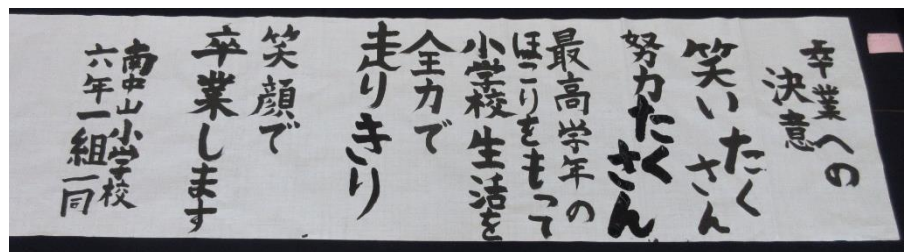 卒業への
決意
笑いたくさん
努力たくさん
最高学年の
ほこりをもって
小学校生活を
全力で
走りきり
笑顔で
卒業します
南中山小学校
六年一組一同